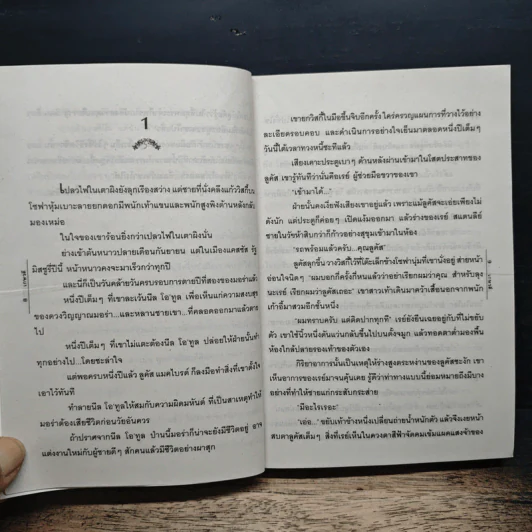 1
เปลวไฟในเตาผิงยังลุกเรืองสว่าง แต่ชายที่นั่งคลึงแก้ววิสกี้บน
โซฟาหุ้มเบาะลายยกดอกมีพนักเท้าแขนและพนักสูงพิงด้านหลังกลับ
มองเหม่อ
ในใจของเขาร้อนยิ่งกว่าเปลวไฟในเตาผิงนั่น
ย่างเข้าต้นหนาวปลายเดือนกันยายน แต่ในเมืองแคสซัส รัฐ
มิสซูรี่ปีนี้ หน้าหนาวคงจะมาเร็วกว่าทุกปี
และนี่ก็เป็นวันคล้ายวันครบรอบการตายปีที่สองของมอร่าแล้ว
หนึ่งปีเต็มๆ ที่เขาละเว้นนีล โอ'ทูล เพื่อเห็นแก่ความสงบสุข
ของดวงวิญญาณมอร่า...และหลานชายเขา...ที่คลอดออกมาแล้วตาย
ไป
หนึ่งปีเต็มๆ ที่เขาไม่แตะต้องนีล โอ'ทูล ปล่อยให้ฝ่ายนั้นทำ
ทุกอย่างไป...โดยชะล่าใจ
แต่พอครบหนึ่งปีแล้ว ลูคัส แมคไบรด์ ก็ลงมือทำสิ่งที่เขาตั้งใจ
เอาไว้ทันที
ทำลายนีล โอ'ทูลให้สมกับความผิดมหันต์ ที่เป็นสาเหตุทำให้
มอร่าต้องเสียชีวิตก่อนวัยอันควร
ถ้าปราศจากนีล โอ'ทูล ป่านนี้มอร่าก็น่าจะยังมีชีวิตอยู่ อาจ
แต่งงานใหม่กับผู้ชายดีๆ สักคนแล้วมีชีวิตอย่างผาสุก
เขายกวิสกี้ในมือขึ้นจิบอีกครั้ง ใคร่ครวญแผนการที่วางไว้อย่าง
ละเอียดรอบคอบ และดำเนินการอย่างใจเย็นมาตลอดหนึ่งปีเต็มๆ
วันนี้ได้เวลาทวงหนี้ซะทีแล้ว
เสียงเคาะประตูเบาๆ ด้านหลังผ่านเข้ามาในโสตประสาทของ
ลูคัส เขารู้ทันทีว่านั่นคือเรย์ ผู้ช่วยมือขวาของเขา
"เข้ามาได้..."
ฝ่ายนั้นคงเงี่ยหูฟังเสียงเขาอยู่แล้ว เพราะแม้ลูคัสจะเอ่ยเพียงไม่
ดังนัก แต่ประตูก็ค่อยๆ เปิดแง้มออกมา แล้วร่างของเรย์ สแตนลีย์
ชายในวัยห้าสิบกว่าก็ก้าวอย่างสุขุมเข้ามาในห้อง
"รถพร้อมแล้วครับ...คุณลูคัส"
ลูคัสลุกขึ้น วางวิสกี้ไว้ที่โต๊ะเล็กข้างโซฟานุ่มที่เขานั่งอยู่ ส่ายหน้า
อ่อนใจนิดๆ "ผมบอกกี่ครั้งกี่หนแล้วว่าอย่าเรียกผมว่าคุณ สำหรับลุง
นะเรย์ เรียกผมว่าลูคัสเถอะ" เขาสาวเท้าเดินมาคว้าเสื้อนอกจากพนัก
เก้าอี้มาสวมอีกชั้นหนึ่ง
"ผมทราบครับ แต่ติดปากทุกที" เรย์ยังยืนเฉยอยู่กับที่ไม่ขยับ
ตัว เขาใช้นิ้วหนึ่งดันแว่นกลับขึ้นไปบนดั้งจมูก แล้วทอดตาต่ำมองพื้น
ห้องใกล้ปลายรองเท้าของตัวเอง
กิริยาอาการนั้นเป็นเหตุให้ร่างสูงตระหง่านของลูคัสชะงัก เขา
เห็นอาการของเรย์มาจนคุ้นเคย รู้ดีว่าท่าทางแบบนี้ย่อมหมายถึงมีบาง
อย่างที่ทำให้ชายแก่กระสับกระส่าย
"มีอะไรเรอะ"
"เอ่อ..." ขยับเท้าข้างหนึ่งเปลี่ยนถ่ายน้ำหนักตัว แล้วจึงเงยหน้า
สบตาลูคัสเต็มๆ สิ่งที่เรย์เห็นในดวงตาสีฟ้าจัดคมเข้มแผดแสงจ้าของ